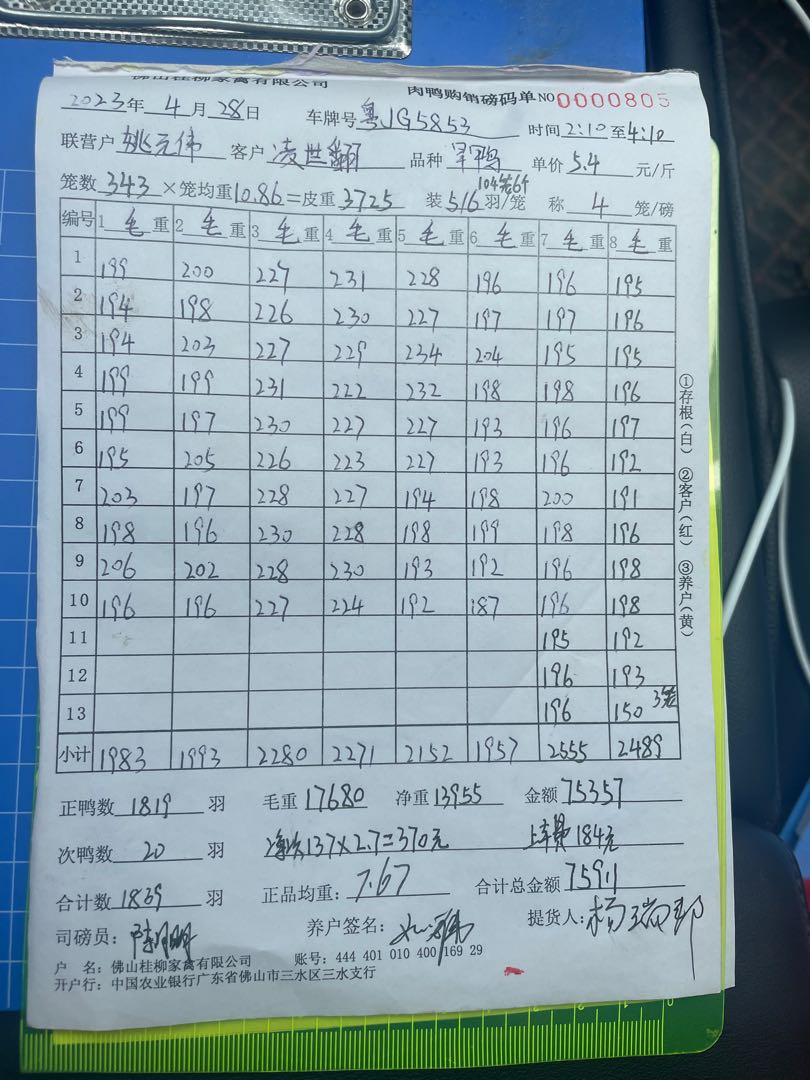 佛山桂柳家禽有限公司 肉鸭购销磅码单 NO 0000805
2023年 4 月 28 日 车牌号 粤JG5853 时间 2:10 至 4:10
联营户 姚元伟 客户 凌世翻 品种 单价 5.4 元/斤
104笼6个
笼数 343 ×笼均重 10.86 =皮重 3725 装 5/6 羽/笼 称 4 笼/磅
编号 1 毛 重 2 毛 重 3 毛 重 4 毛 重 5 毛 重 6 毛 重 7 毛 重 8 毛 重
1 199 200 227 231 228 196 196 195
2 194 198 226 230 227 197 197 196
3 194 203 227 229 234 204 195 195
4 199 199 231 222 232 198 198 196
5 199 197 230 227 227 193 196 197
6 195 205 226 223 227 193 196 192
7 203 197 228 227 194 198 200 191
8 198 196 230 228 198 199 198 196
9 206 202 228 230 193 192 196 198
10 196 196 227 224 192 187 196 198
11 195 192
12 196 193
13 196 150 3笼
小计 1983 1993 2280 2271 2152 1957 2555 2489
①存根(白) ②客户(红) ③养户(黄)
正鸭数 1819 羽 毛重 17680 净重 13955 金额 75357
次鸭数 20 羽 137×2.7=370元 上车费184元
合计数 1839 羽 正品均重: 7.67 合计总金额 75911
司磅员: 养户签名: 提货人: 杨瑞邦
户 名: 佛山桂柳家禽有限公司 账号: 444 401 010 400 169 29
开户行: 中国农业银行广东省佛山市三水区三水支行